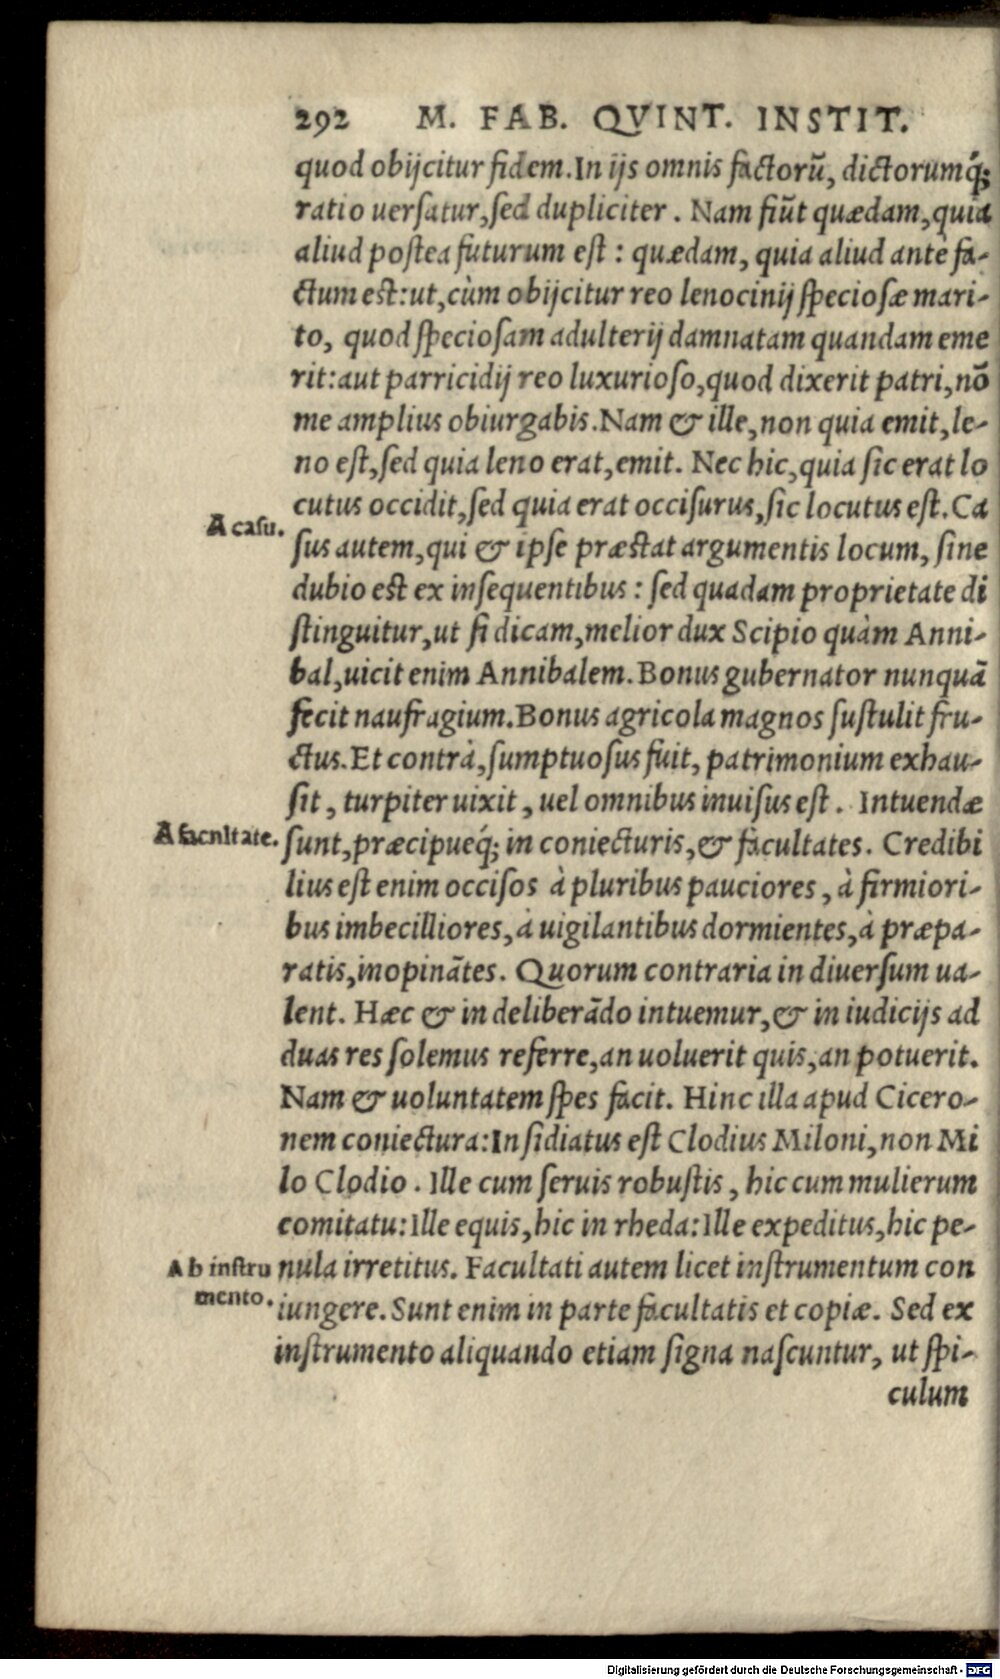 292 M. FAB. QVINT. INSTIT.
quod obijcitur fidem. In ijs omnis factorũ, dictorumq́;
ratio uersatur, sed dupliciter. Nam fiũt quædam, quia
aliud postea futurum est: quædam, quia aliud antè fa-
ctum est: ut, cùm obijcitur reo lenocinij speciosæ mari-
to, quod speciosam adulterij damnatam quandam eme
rit: aut parricidij reo luxurioso, quod dixerit patri, nõ
me amplius obiurgabis. Nam & ille, non quia emit, le-
no est, sed quia leno erat, emit. Nec hic, quia sic erat lo
cutus occidit, sed quia erat occisurus, sic locutus est. Ca
A casu.
sus autem, qui & ipse præstat argumentis locum, sine
dubio est ex insequentibus: sed quadam proprietate di
stinguitur, ut si dicam, melior dux Scipio quàm Anni-
bal, uicit enim Annibalem. Bonus gubernator nunquã
fecit naufragium. Bonus agricola magnos sustulit fru-
ctus. Et contrà, sumptuosus fuit, patrimonium exhau-
sit, turpiter uixit, uel omnibus inuisus est. Intuendæ
A facnltate.
sunt, præcipueq́; in coniecturis, & facultates. Credibi
lius est enim occisos à pluribus pauciores, à firmiori-
bus imbecilliores, à uigilantibus dormientes, à præpa-
ratis, inopinãtes. Quorum contraria in diuersum ua-
lent. Hæc & in deliberãdo intuemur, & in iudicijs ad
duas res solemus referre, an uoluerit quis, an potuerit.
Nam & uoluntatem spes facit. Hinc illa apud Cicero-
nem coniectura: Insidiatus est Clodius Miloni, non Mi
lo Clodio. Ille cum seruis robustis, hic cum mulierum
comitatu: Ille equis, hic in rheda: Ille expeditus, hic pe-
Ab instru
nula irretitus. Facultati autem licet instrumentum con
mento.
iungere. Sunt enim in parte facultatis et copiæ. Sed ex
instrumento aliquando etiam signa nascuntur, ut spi-
culum
Digitalisierung gefördert durch die Deutsche Forschungsgemeinschaft - DFG